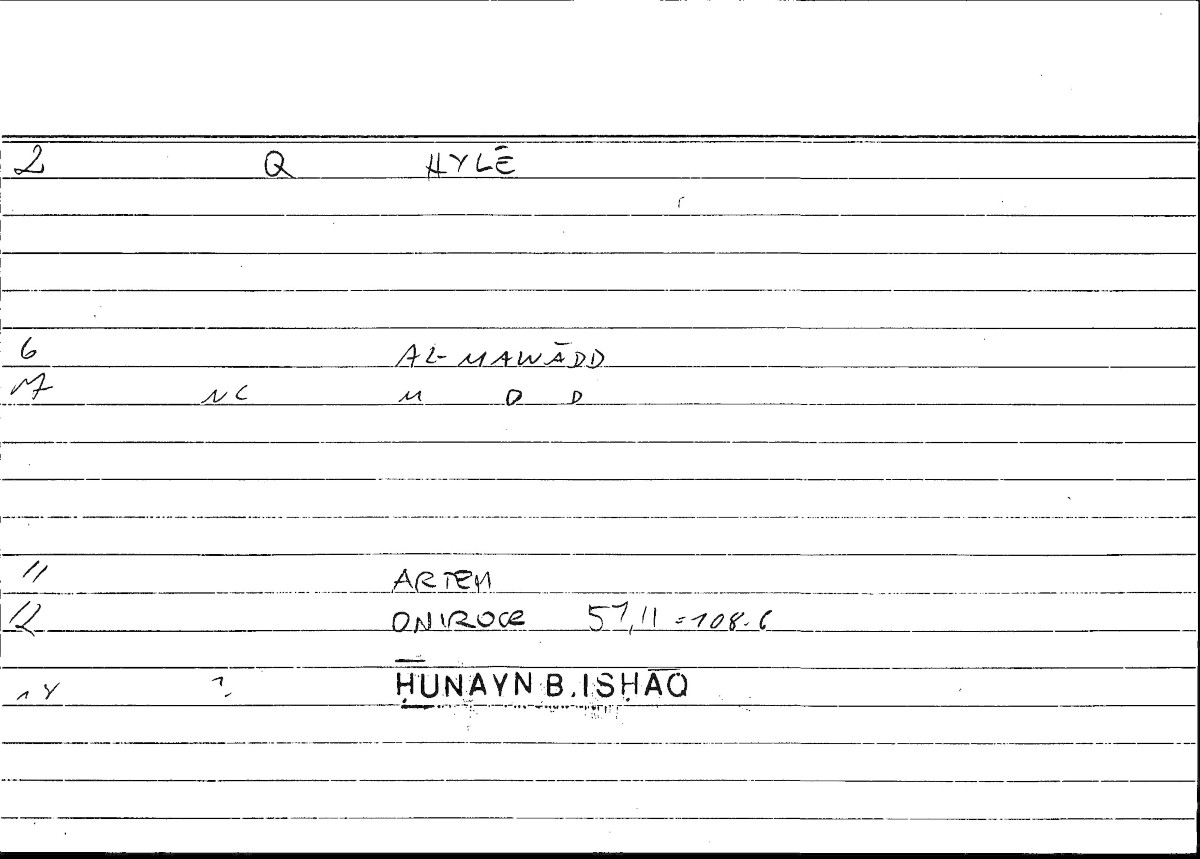 2 Q HYLĒ
6 AL-MAWĀDD
7 NC M D D
11 ARTEM
12 ONIROCR 51,11 = 108.6
14 ? ḤUNAYN B. ISḤĀQ